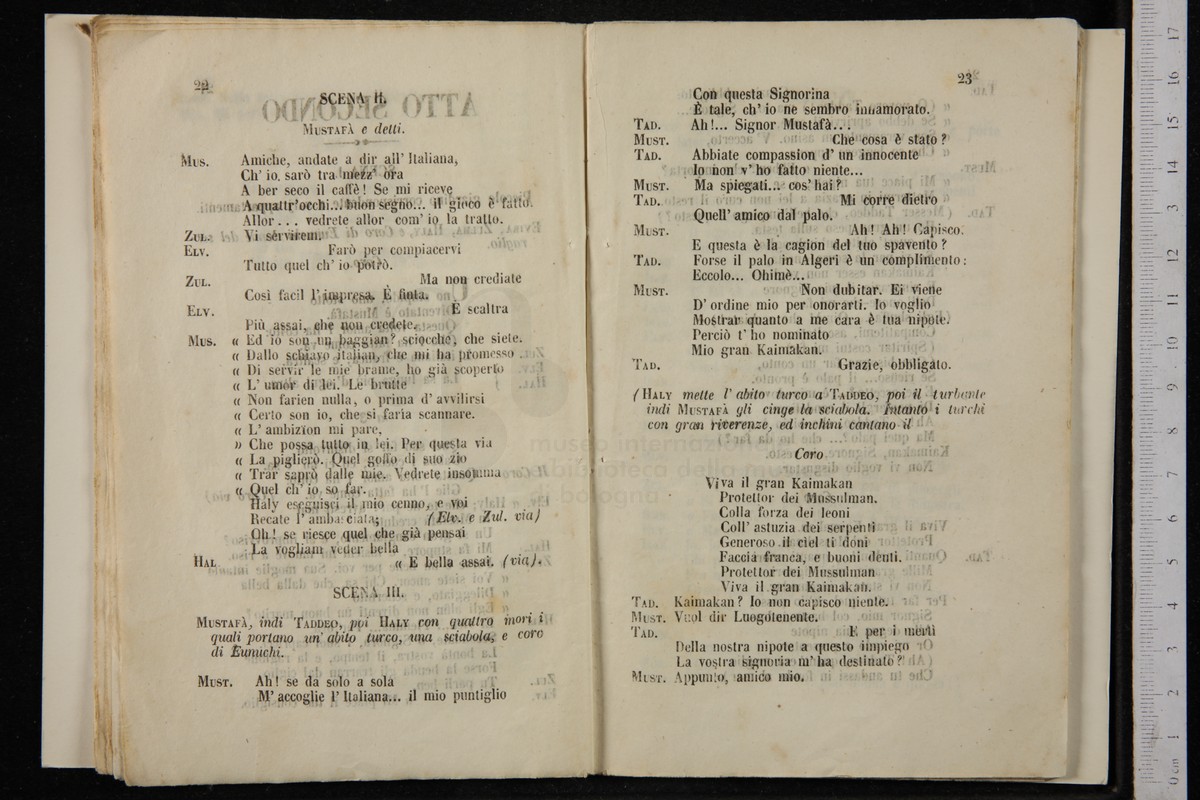 22
SCENA II.
MUSTAFÀ e detti.
MUS. Amiche, andate a dir all' Italiana,
Ch' io sarò tra mezz' ora
A ber seco il caffè! Se mi riceve
A quattr' occhi... buon segno... il gioco è fatto.
Allor... vedrete allor com' io la tratto.
ZUL. Vi servirem.
ELV. Farò per compiacervi
Tutto quel ch' io potrò.
ZUL. Ma non crediate
Così facil l' impresa. È finta.
ELV. È scaltra
Più assai, che non credete.
MUS. « Ed io son un baggian? sciocche, che siete.
« Dallo schiavo italian, che mi ha promesso
« Di servir le mie brame, ho già scoperto
« L' umor di lei. Le brutte
« Non farien nulla, o prima d' avvilirsi
« Certo son io, che si faria scannare.
« L' ambizïon mi pare,
» Che possa tutto in lei. Per questa via
« La piglierò. Quel goffo di suo zio
« Trar saprò dalle mie. Vedrete insomma
« Quel ch' io so far.
Haly eseguisci il mio cenno, e voi
Recate l' ambasciata; (Elv. e Zul. via)
Oh! se riesce quel che già pensai
La vogliam veder bella
HAL « E bella assai. (via).
SCENA III.
MUSTAFÀ, indi TADDEO, poi HALY con quattro mori i
quali portano un' abito turco, una sciabola, e coro
di Eunuchi.
MUST. Ah! se da solo a sola
M' accoglie l' Italiana... il mio puntiglio
23
Con questa Signorina
È tale, ch' io ne sembro innamorato.
TAD. Ah!... Signor Mustafà...
MUST. Che cosa è stato?
TAD. Abbiate compassion d' un innocente
Io non v' ho fatto niente...
MUST. Ma spiegati... cos' hai?
TAD. Mi corre dietro
Quell' amico dal palo.
MUST. Ah! Ah! Capisco.
E questa è la cagion del tuo spavento?
TAD. Forse il palo in Algeri è un complimento:
Eccolo... Ohimè...
MUST. Non dubitar. Ei viene
D' ordine mio per onorarti. Io voglio
Mostrar quanto a me cara è tua nipote.
Perciò t' ho nominato
Mio gran Kaimakan.
TAD. Grazie, obbligato.
(HALY mette l' abito turco a TADDEO, poi il turbante
indi MUSTAFÀ gli cinge la sciabola. Intanto i turchi
con gran riverenze, ed inchini cantano il
Coro
Viva il gran Kaimakan
Protettor dei Mussulman.
Colla forza dei leoni
Coll' astuzia dei serpenti
Generoso il ciel ti doni
Faccia franca, e buoni denti.
Protettor dei Mussulman
Viva il gran Kaimakan.
TAD. Kaimakan? Io non capisco niente.
MUST. Vuol dir Luogotenente.
TAD. E per i merti
Della nostra nipote a questo impiego
La vostra signoria m' ha destinato?
MUST. Appunto, amico mio.